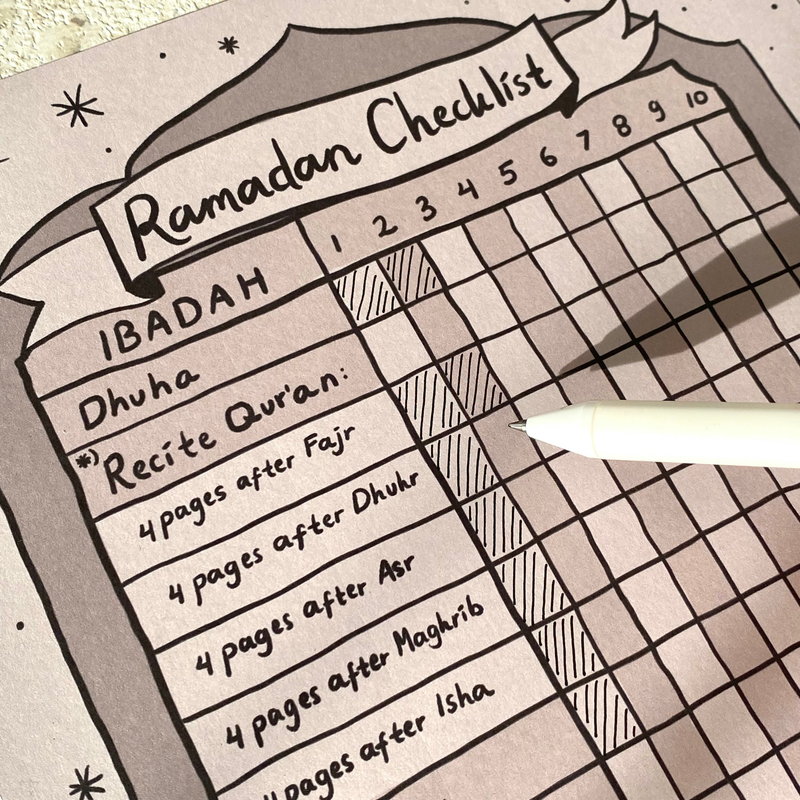 Ramadan Checklist
IBADAH 1 2 3 4 5 6 7 8 9 10
Dhuha
*) Recite Qur'an:
4 pages after Fajr
4 pages after Dhuhr
4 pages after Asr
4 pages after Maghrib
4 pages after Isha